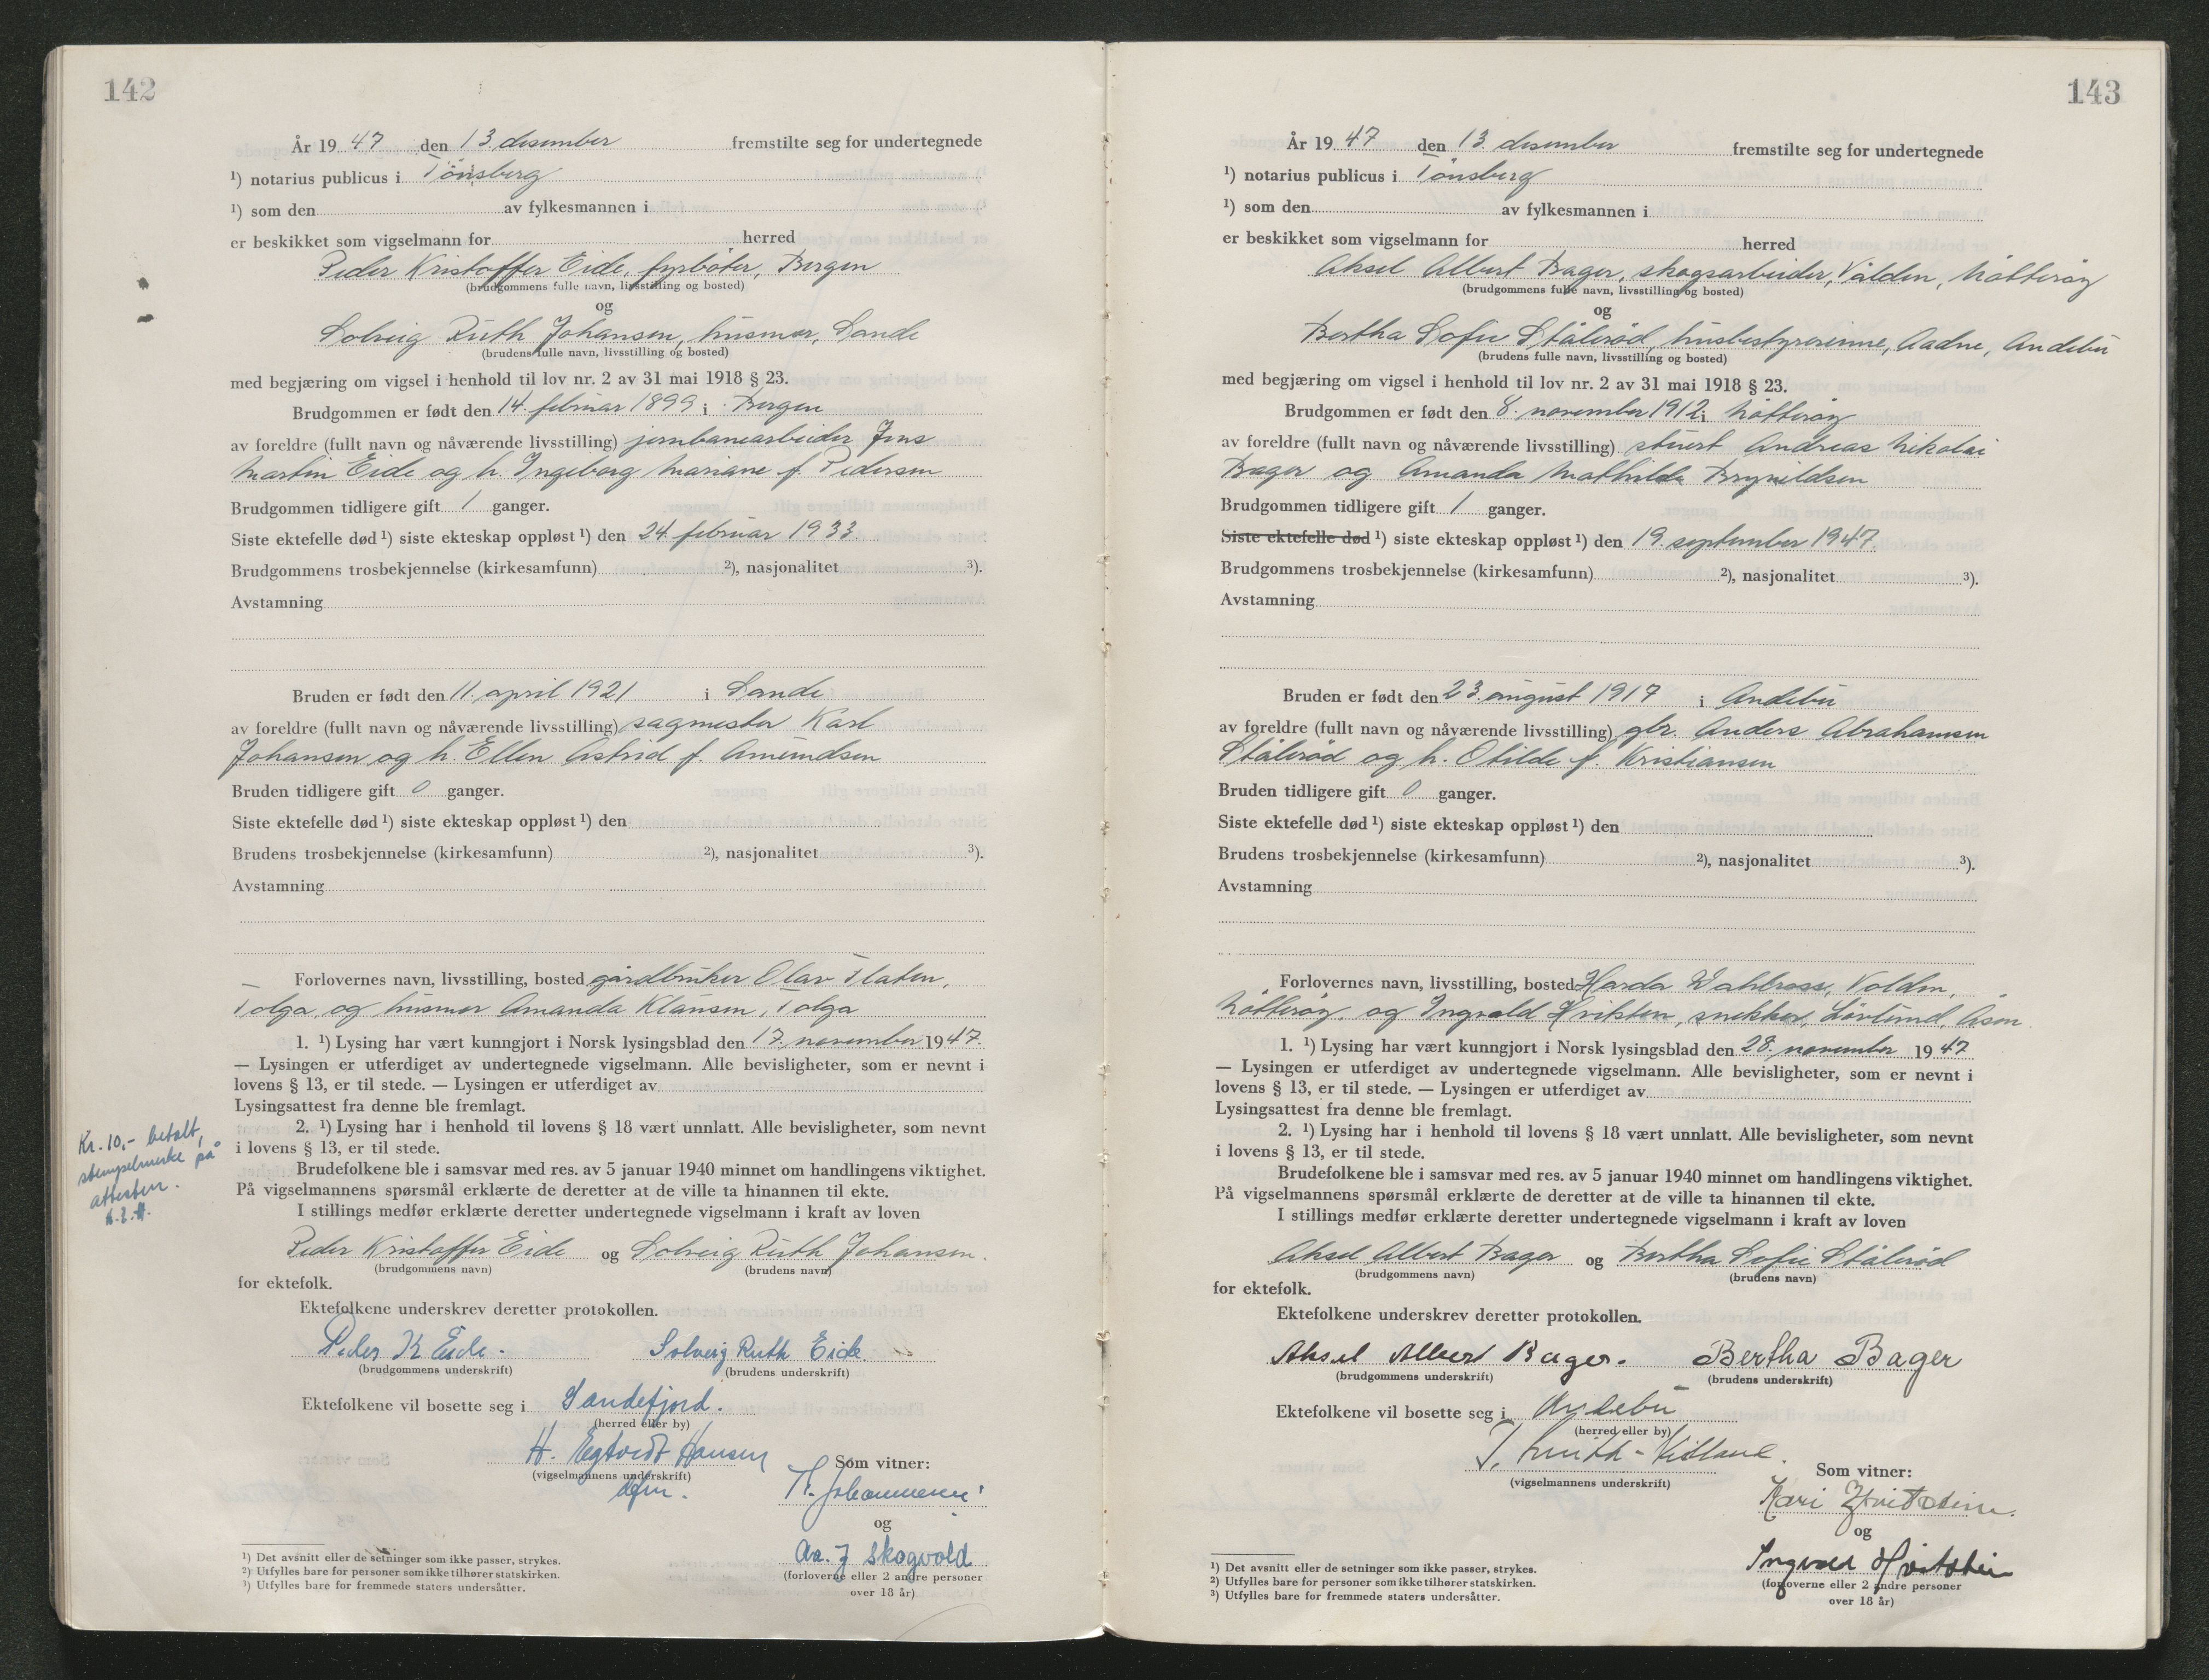 142
År 19 47 den 13. desember fremstilte seg for undertegnede
¹) notarius publicus i Tönsberg
¹) som den av fylkesmannen i
er beskikket som vigselmann for herred
Peder Kristoffer Eide, fyrböter, Bergen
(brudgommens fulle navn, livsstilling og bosted)
og
Solveig Ruth Johansen, husmor, Sande
(brudens fulle navn, livsstilling og bosted)
med begjæring om vigsel i henhold til lov nr. 2 av 31 mai 1918 § 23.
Brudgommen er født den 14. februar 1899 i Bergen
av foreldre (fullt navn og nåværende livsstilling) jernbanearbeider Jens
Martin Eide og h. Ingeborg Mariane f. Pedersen
Brudgommen tidligere gift 1 ganger.
Siste ektefelle død ¹) siste ekteskap oppløst ¹) den 24. februar 1933.
Brudgommens trosbekjennelse (kirkesamfunn) ²), nasjonalitet ³).
Avstamning
Bruden er født den 11. april 1921 i Sande
av foreldre (fullt navn og nåværende livsstilling) sagmester Karl
Johansen og h. Ellen Astrid f. Amundsen
Bruden tidligere gift 0 ganger.
Siste ektefelle død ¹) siste ekteskap oppløst ¹) den
Brudens trosbekjennelse (kirkesamfunn) ²), nasjonalitet ³).
Avstamning
Forlovernes navn, livsstilling, bosted gårdbruker Olav Flaten,
Tolga, og husmor Amanda Klausen, Tolga
1. ¹) Lysing har vært kunngjort i Norsk lysingsblad den 17. november 1947.
— Lysingen er utferdiget av undertegnede vigselmann. Alle bevisligheter, som er nevnt i
lovens § 13, er til stede. — Lysingen er utferdiget av
Lysingsattest fra denne ble fremlagt.
2. ¹) Lysing har i henhold til lovens § 18 vært unnlatt. Alle bevisligheter, som nevnt
i lovens § 13, er til stede.
Kr. 10,- betalt,
stempelmerke på
attesten.
Brudefolkene ble i samsvar med res. av 5 januar 1940 minnet om handlingens viktighet.
På vigselmannens spørsmål erklærte de deretter at de ville ta hinannen til ekte.
I stillings medfør erklærte deretter undertegnede vigselmann i kraft av loven
Peder Kristoffer Eide og Solveig Ruth Johansen.
(brudgommens navn) (brudens navn)
for ektefolk.
Ektefolkene underskrev deretter protokollen.
Peder K Eide. Solveig Ruth Eide.
(brudgommens underskrift) (brudens underskrift)
Ektefolkene vil bosette seg i Sandefjord.
(herred eller by)
H. Egtvedt Hansen
(vigselmannens underskrift)
Som vitner:
og
Aa. J Skogvold
(forloverne eller 2 andre personer
over 18 år)
¹) Det avsnitt eller de setninger som ikke passer, strykes.
²) Utfylles bare for personer som ikke tilhører statskirken.
³) Utfylles bare for fremmede staters undersåtter.
143
År 19 47 den 13. desember fremstilte seg for undertegnede
¹) notarius publicus i Tönsberg
¹) som den av fylkesmannen i
er beskikket som vigselmann for herred
Aksel Albert Bager, skogsarbeider, Volden, Nötteröy
(brudgommens fulle navn, livsstilling og bosted)
og
Bertha Sofie Stålerød, husbestyrerinne, Aadne, Andebu
(brudens fulle navn, livsstilling og bosted)
med begjæring om vigsel i henhold til lov nr. 2 av 31 mai 1918 § 23.
Brudgommen er født den 8. november 1912 i Nötteröy
av foreldre (fullt navn og nåværende livsstilling) stuert Andreas Nikolai
Bager og Amanda Mathilde Brynildsen
Brudgommen tidligere gift 1 ganger.
Siste ektefelle død ¹) siste ekteskap oppløst ¹) den 19. september 1947.
Brudgommens trosbekjennelse (kirkesamfunn) ²), nasjonalitet ³).
Avstamning
Bruden er født den 23. august 1917 i Andebu
av foreldre (fullt navn og nåværende livsstilling) gbr. Anders Abrahamsen
Stålerød og h. Otilde f. Kristiansen
Bruden tidligere gift 0 ganger.
Siste ektefelle død ¹) siste ekteskap oppløst ¹) den
Brudens trosbekjennelse (kirkesamfunn) ²), nasjonalitet ³).
Avstamning
Forlovernes navn, livsstilling, bosted Harda Wahlross, Volden,
Nötteröy, og Ingvald Hvitsten, snekker, Lövlund, Åsen
1. ¹) Lysing har vært kunngjort i Norsk lysingsblad den 28. november 1947
— Lysingen er utferdiget av undertegnede vigselmann. Alle bevisligheter, som er nevnt i
lovens § 13, er til stede. — Lysingen er utferdiget av
Lysingsattest fra denne ble fremlagt.
2. ¹) Lysing har i henhold til lovens § 18 vært unnlatt. Alle bevisligheter, som nevnt
i lovens § 13, er til stede.
Brudefolkene ble i samsvar med res. av 5 januar 1940 minnet om handlingens viktighet.
På vigselmannens spørsmål erklærte de deretter at de ville ta hinannen til ekte.
I stillings medfør erklærte deretter undertegnede vigselmann i kraft av loven
Aksel Albert Bager og Bertha Sofie Stålerød
(brudgommens navn) (brudens navn)
for ektefolk.
Ektefolkene underskrev deretter protokollen.
Aksel Albert Bager. Bertha Bager
(brudgommens underskrift) (brudens underskrift)
Ektefolkene vil bosette seg i Andebu
(herred eller by)
(vigselmannens underskrift)
Som vitner:
Kari Hvitstein.
og
Ingvald Hvitstein
(forloverne eller 2 andre personer
over 18 år)
¹) Det avsnitt eller de setninger som ikke passer, strykes.
²) Utfylles bare for personer som ikke tilhører statskirken.
³) Utfylles bare for fremmede staters undersåtter.